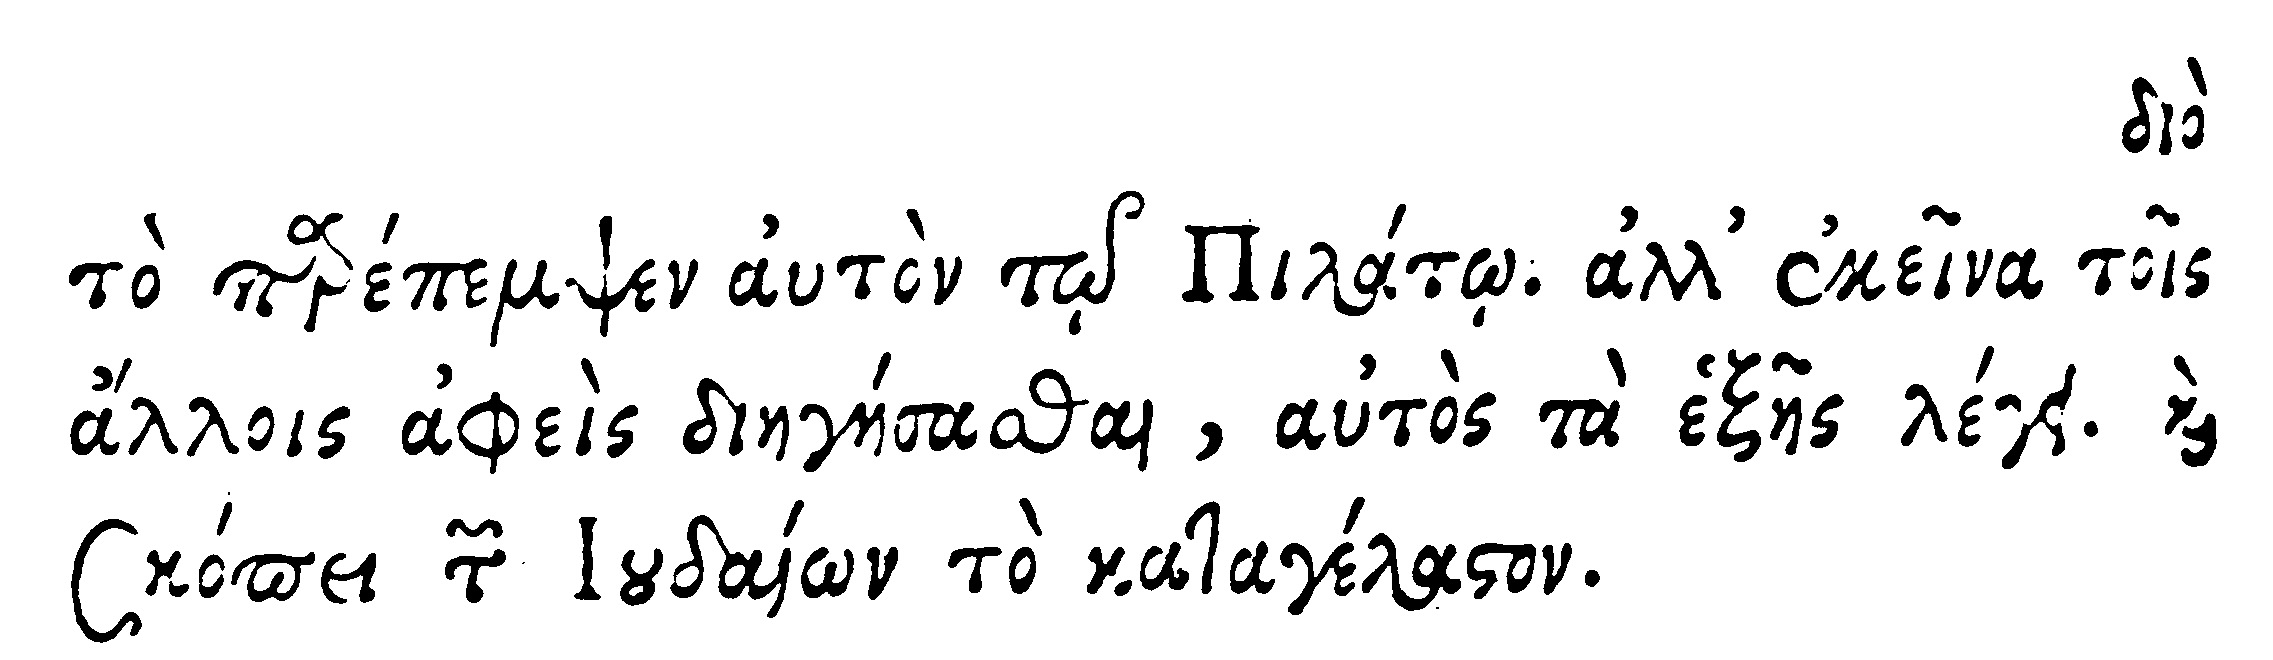 διὸ
τὸ παρέπεμψεν αὐτὸν τῷ Πιλάτῳ. ἀλλ’ ἐκεῖνα τοῖς
ἄλλοις ἀφεὶς διηγήσασθαι, αὐτὸς τὰ ἑξῆς λέγει. καὶ
σκόπει τῶν Ιουδαίων τὸ καταγέλαστον.